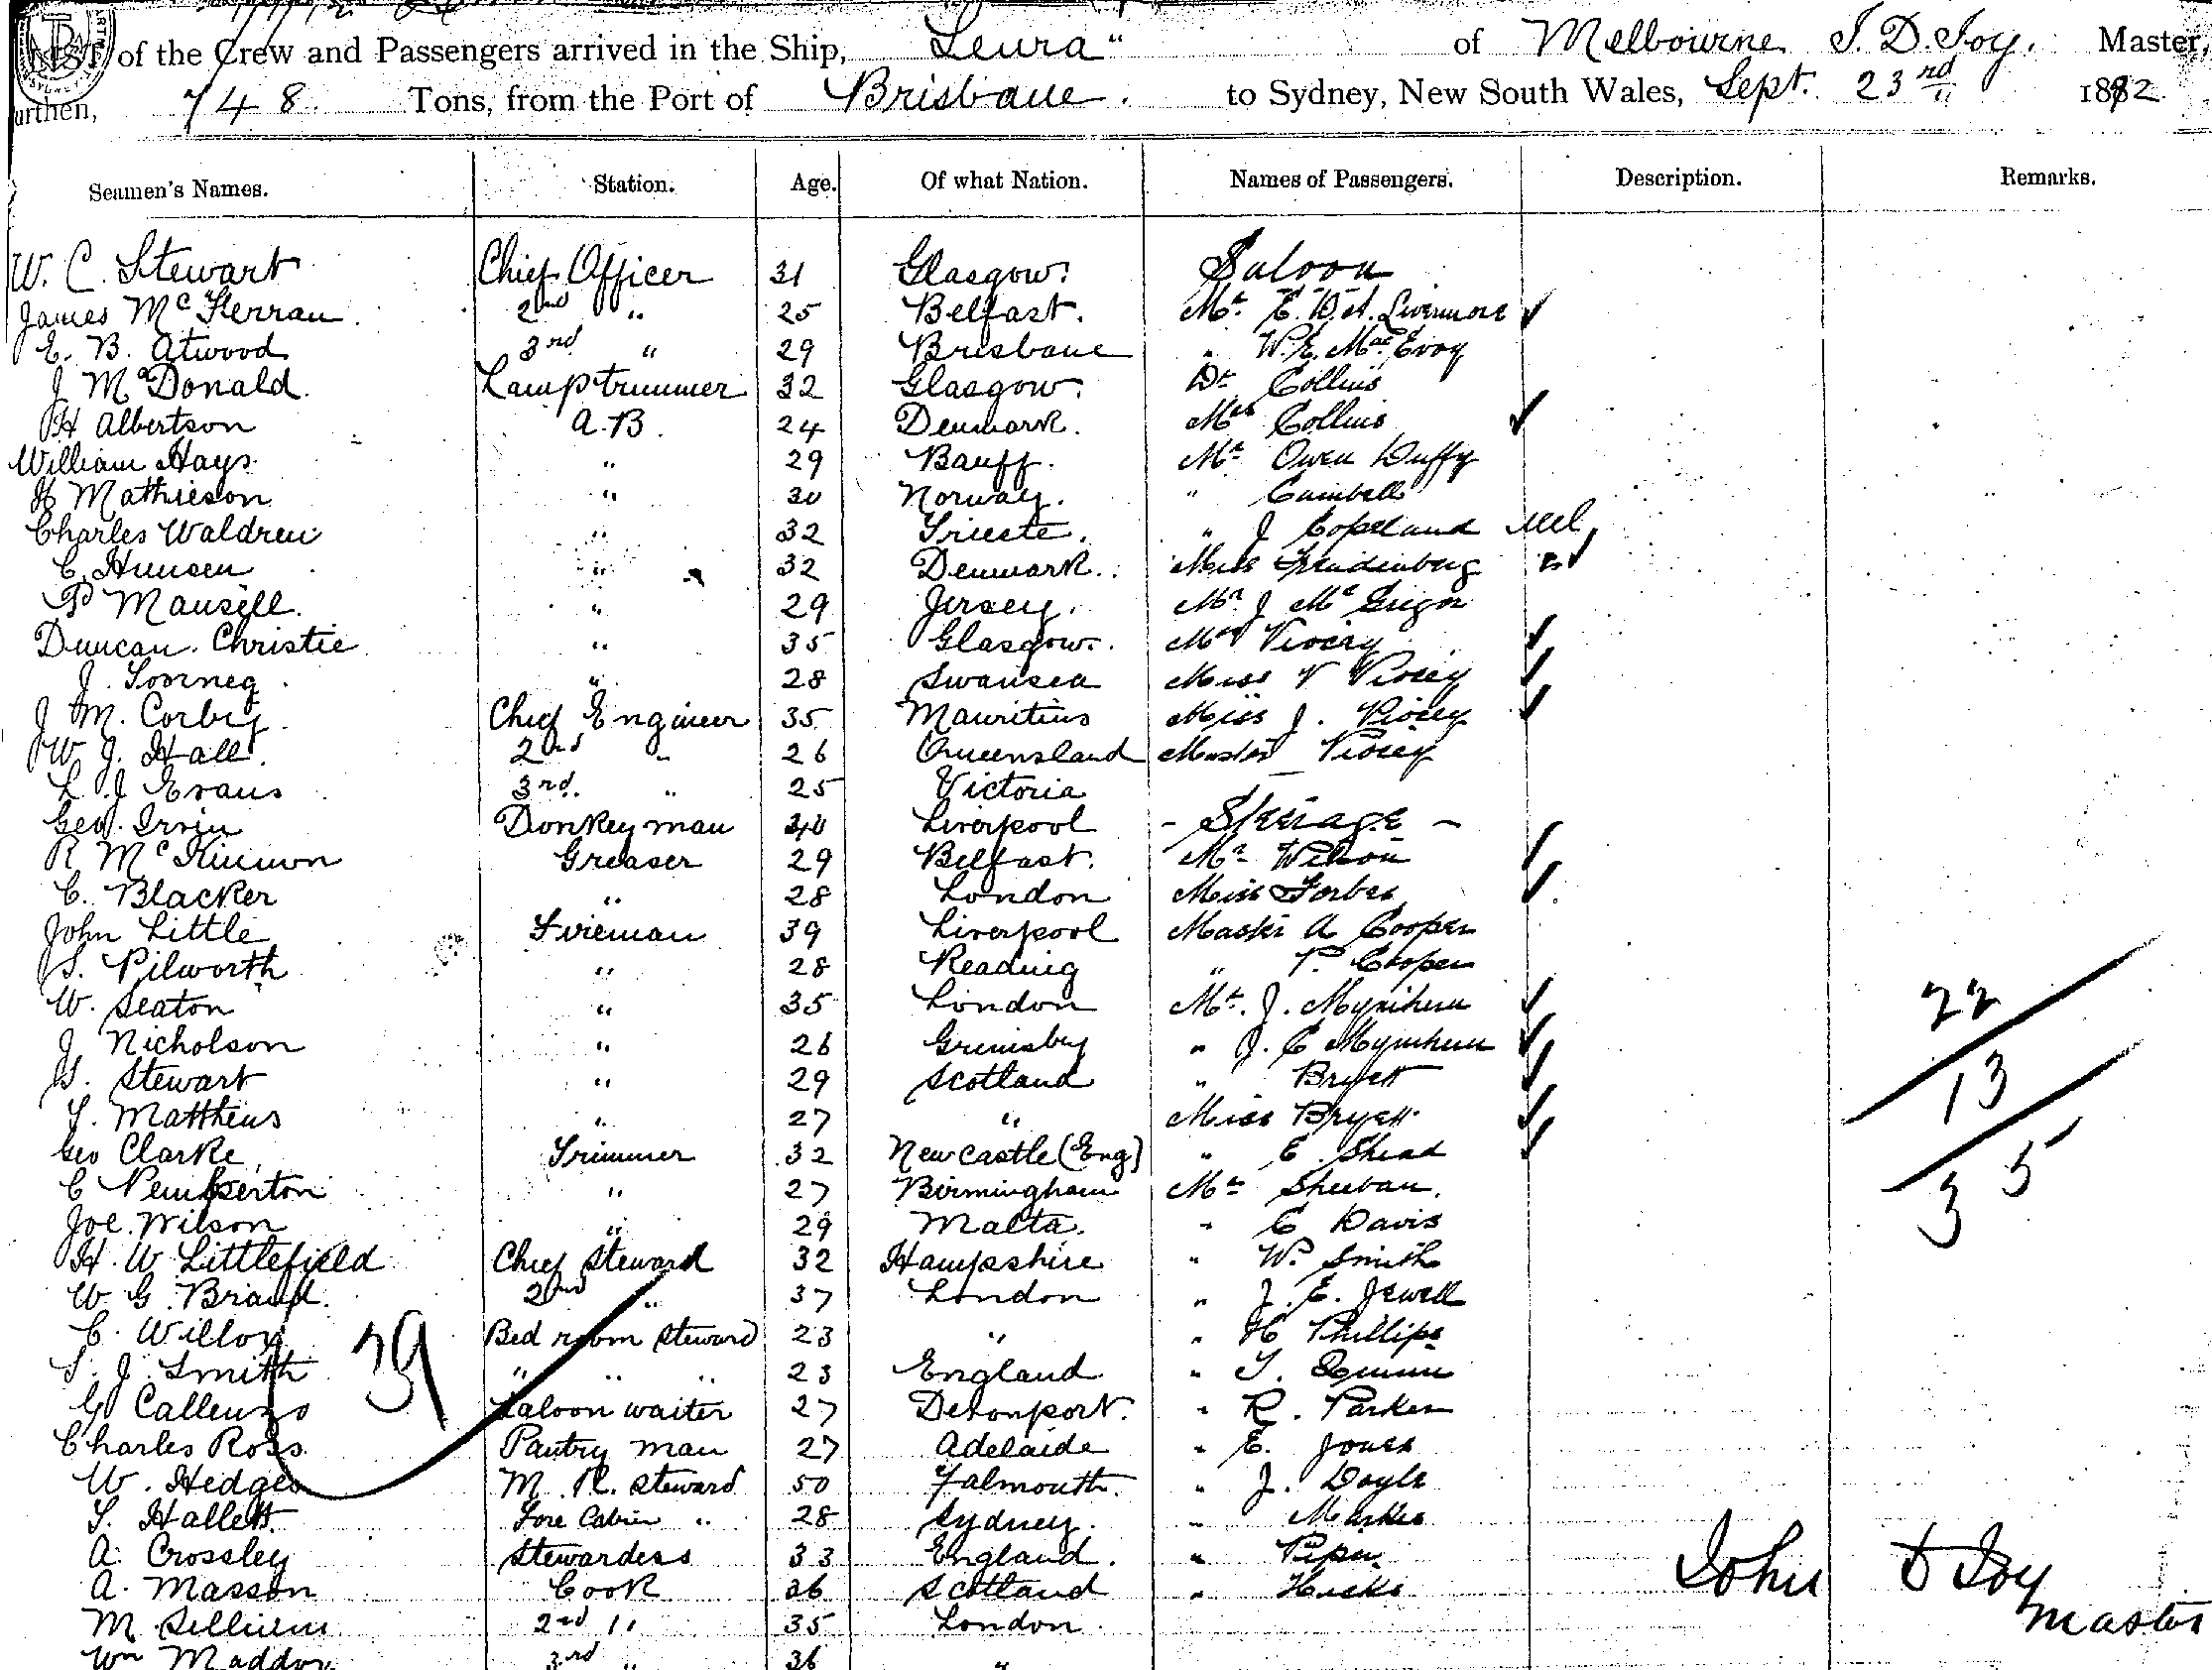 LIST of the Crew and Passengers arrived in the Ship, "Leura" of Melbourne J. D. Joy. Master,
urthen, 748 Tons, from the Port of Brisbane. to Sydney, New South Wales, Sept. 23rd 1892
Seamen's Names. Station. Age. Of what Nation. Names of Passengers. Description. Remarks.
W. C. Stewart Chief Officer 31 Glasgow. Saloon
James McKerran 2nd " 25 Belfast. Mr. E. D. A. Livermore
E. B. Atwood 3rd " 29 Brisbane " W. E. MacEvoy
J McDonald Lamptrimmer 32 Glasgow. Dr Collins
H Albertson A.B. 24 Denmark. Mrs Collins
William Hays " 29 Banff. Mr Owen Duffy
H Mathieson " 30 Norway. " Cambell
Charles Waldren " 32 Trieste. " J Copeland
C. Hansen " 32 Denmark. Miss
P Mansell. " 29 Jersey. Mr J McGrigor
Duncan Christie " 35 Glasgow.
J. " 28 Swansea Miss V
J M. Corby Chief Engineer 35 Mauritius Miss J.
W J. Hall. 2nd " 26 Queensland Master
L J Evans 3rd. " 25 Victoria
Geo. Irvin Donkeyman Liverpool - Steerage -
R McKinnon Greaser 29 Belfast. Mr Wilson
C. Blacker " 28 London Miss Forbes
John Little Fireman 39 Liverpool Master A Cooper
S. Pilworth " 28 Reading " P. Cooper
W. Seaton " 35 London Mr. J. Mynihen
J Nicholson " 26 Grimsby " J. C Mynihen
Stewart " 29 Scotland " Bryett
Matthews " 27 " Miss Bryett
Geo Clarke Trimmer 32 Newcastle (Eng) " E. Shead
C Pemberton " 27 Birmingham Mr Sheehan.
Joe. Wilson " 29 Malta. " C Davis
H. W Littlefield Chief Steward 32 Hampshire " W. Smith
W. G. Brand. 2nd " 37 London " J. E. Jewell
C. Willox Bed room Steward 23 " " H Phillips
J. Smith " " " 23 England " T. Quinn
G Saloon waiter 27 Devonport. " R. Parker
Charles Ross Pantry man 27 Adelaide " E. Jones
W. Hedges M. R. Steward 50 Falmouth. " J. Doyle
Hallett Fore Cabin " 28 Sydney. "
A. Crossley Stewardess 33 England. " Piper
A. Masson Cook 26 Scotland " Hicks
M 2nd " 35 London
Wm Maddox 3rd " 36 "
39
22
13
35
John D Joy
Master